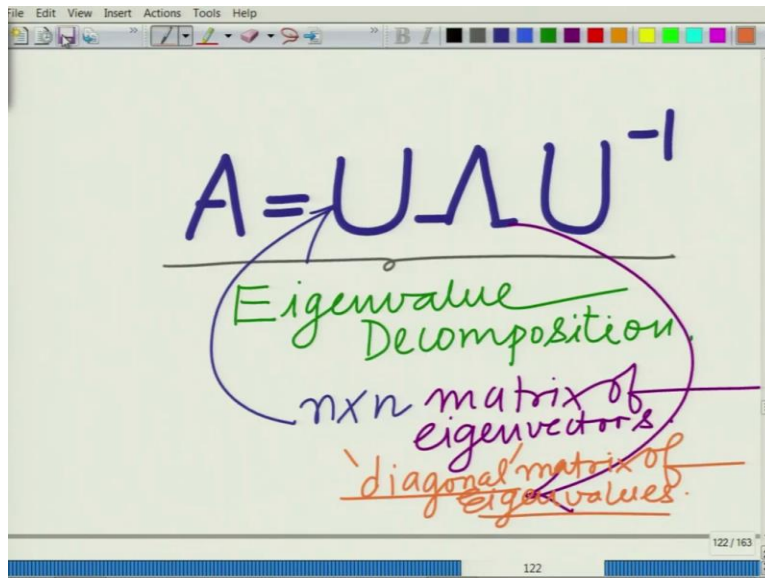 File Edit View Insert Actions Tools Help
A = U Λ U⁻¹
Eigenvalue
Decomposition.
n×n matrix of
eigenvectors.
'diagonal' matrix of
eigenvalues.
122 / 163
122